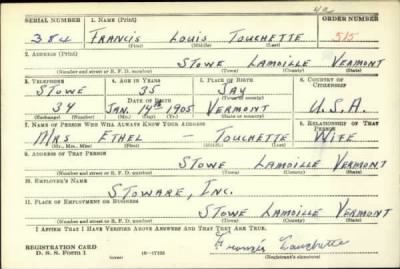 42
SERIAL NUMBER 1. NAME (Print) ORDER NUMBER
384 FRANCIS LOUIS TOUCHETTE 515
(First) (Middle) (Last)
2. ADDRESS (Print)
STOWE LAMOILLE VERMONT
(Number and street or R. F. D. number) (Town) (County) (State)
3. TELEPHONE 4. AGE IN YEARS 5. PLACE OF BIRTH 6. COUNTRY OF CITIZENSHIP
STOWE 35 JAY
(Town or county)
DATE OF BIRTH
34 JAN. 14th 1905 VERMONT U.S.A.
(Exchange) (Number) (Mo.) (Day) (Yr.) (State or country)
7. NAME OF PERSON WHO WILL ALWAYS KNOW YOUR ADDRESS 8. RELATIONSHIP OF THAT PERSON
MRS ETHEL — TOUCHETTE WIFE
(Mr., Mrs., Miss) (First) (Middle) (Last)
9. ADDRESS OF THAT PERSON
STOWE LAMOILLE VERMONT
(Number and street or R. F. D. number) (Town) (County) (State)
10. EMPLOYER'S NAME
STOWARE, INC.
11. PLACE OF EMPLOYMENT OR BUSINESS
STOWE LAMOILLE VERMONT
(Number and street or R. F. D. number) (Town) (County) (State)
I AFFIRM THAT I HAVE VERIFIED ABOVE ANSWERS AND THAT THEY ARE TRUE.
Francis Touchette
REGISTRATION CARD
D. S. S. FORM 1 (over) (Registrant's signature)